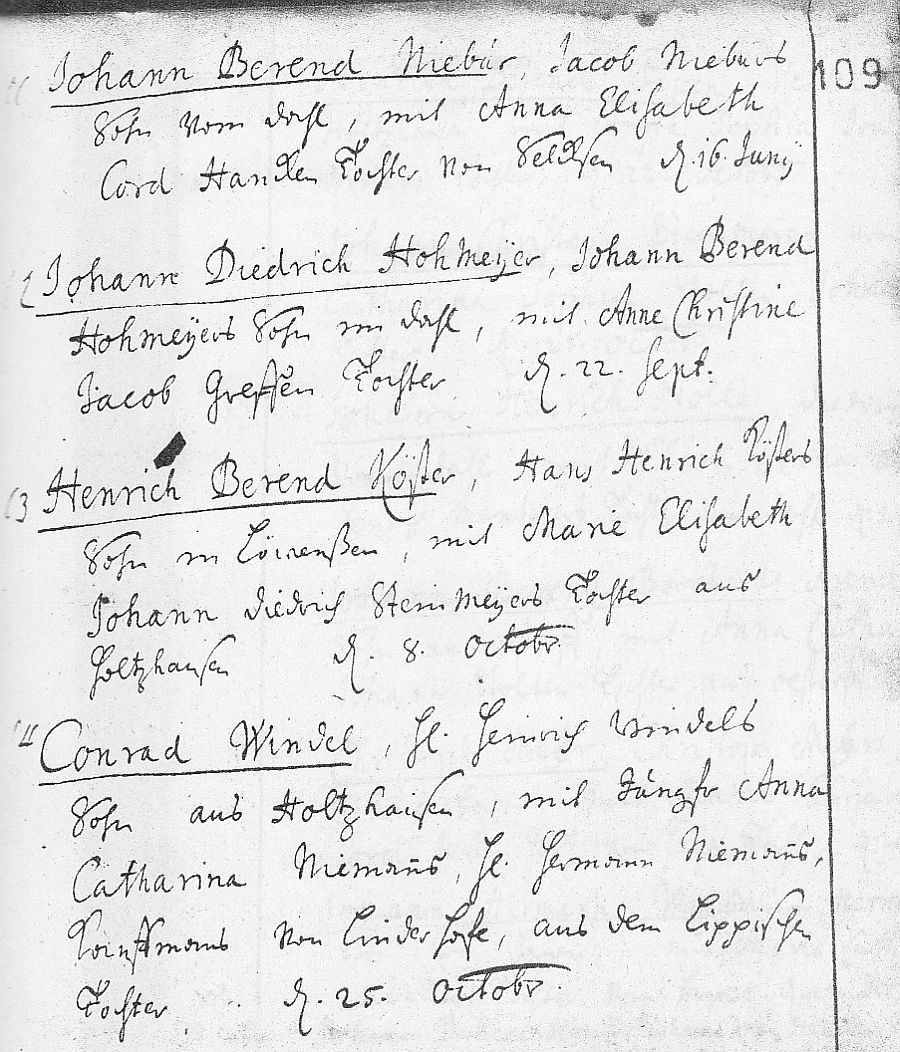 109
Johann Berend Niebur, Jacob Nieburs
Sohn vom Dahl, mit Anna Elisabeth
Cord Hanken Tochter von Selxsen d. 16. Junij
2 Johann Diedrich Hohmeyer, Johann Berend
Hohmeyers Sohn im Dahl, mit Anne Christine
Jacob Greffen Tochter d. 22. Sept.
13 Henrich Berend Köster, Hans Henrich Kösters
Sohn in mit Marie Elisabeth
Johann Diedrich Steinmeyers Tochter aus
Holtzhausen d. 8. Octobr.
Conrad Windel, H. Heinrich Windels
Sohn aus Holtzhausen, mit Jungfr Anna
Catharina Niemans, H. Hermann Niemans,
Kauffmans von Linderhofe, aus dem Lippischen
Tochter d. 25. Octobr.